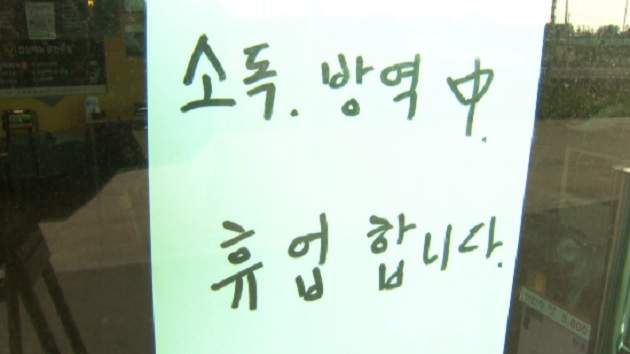 소독. 방역 中.
휴업 합니다.